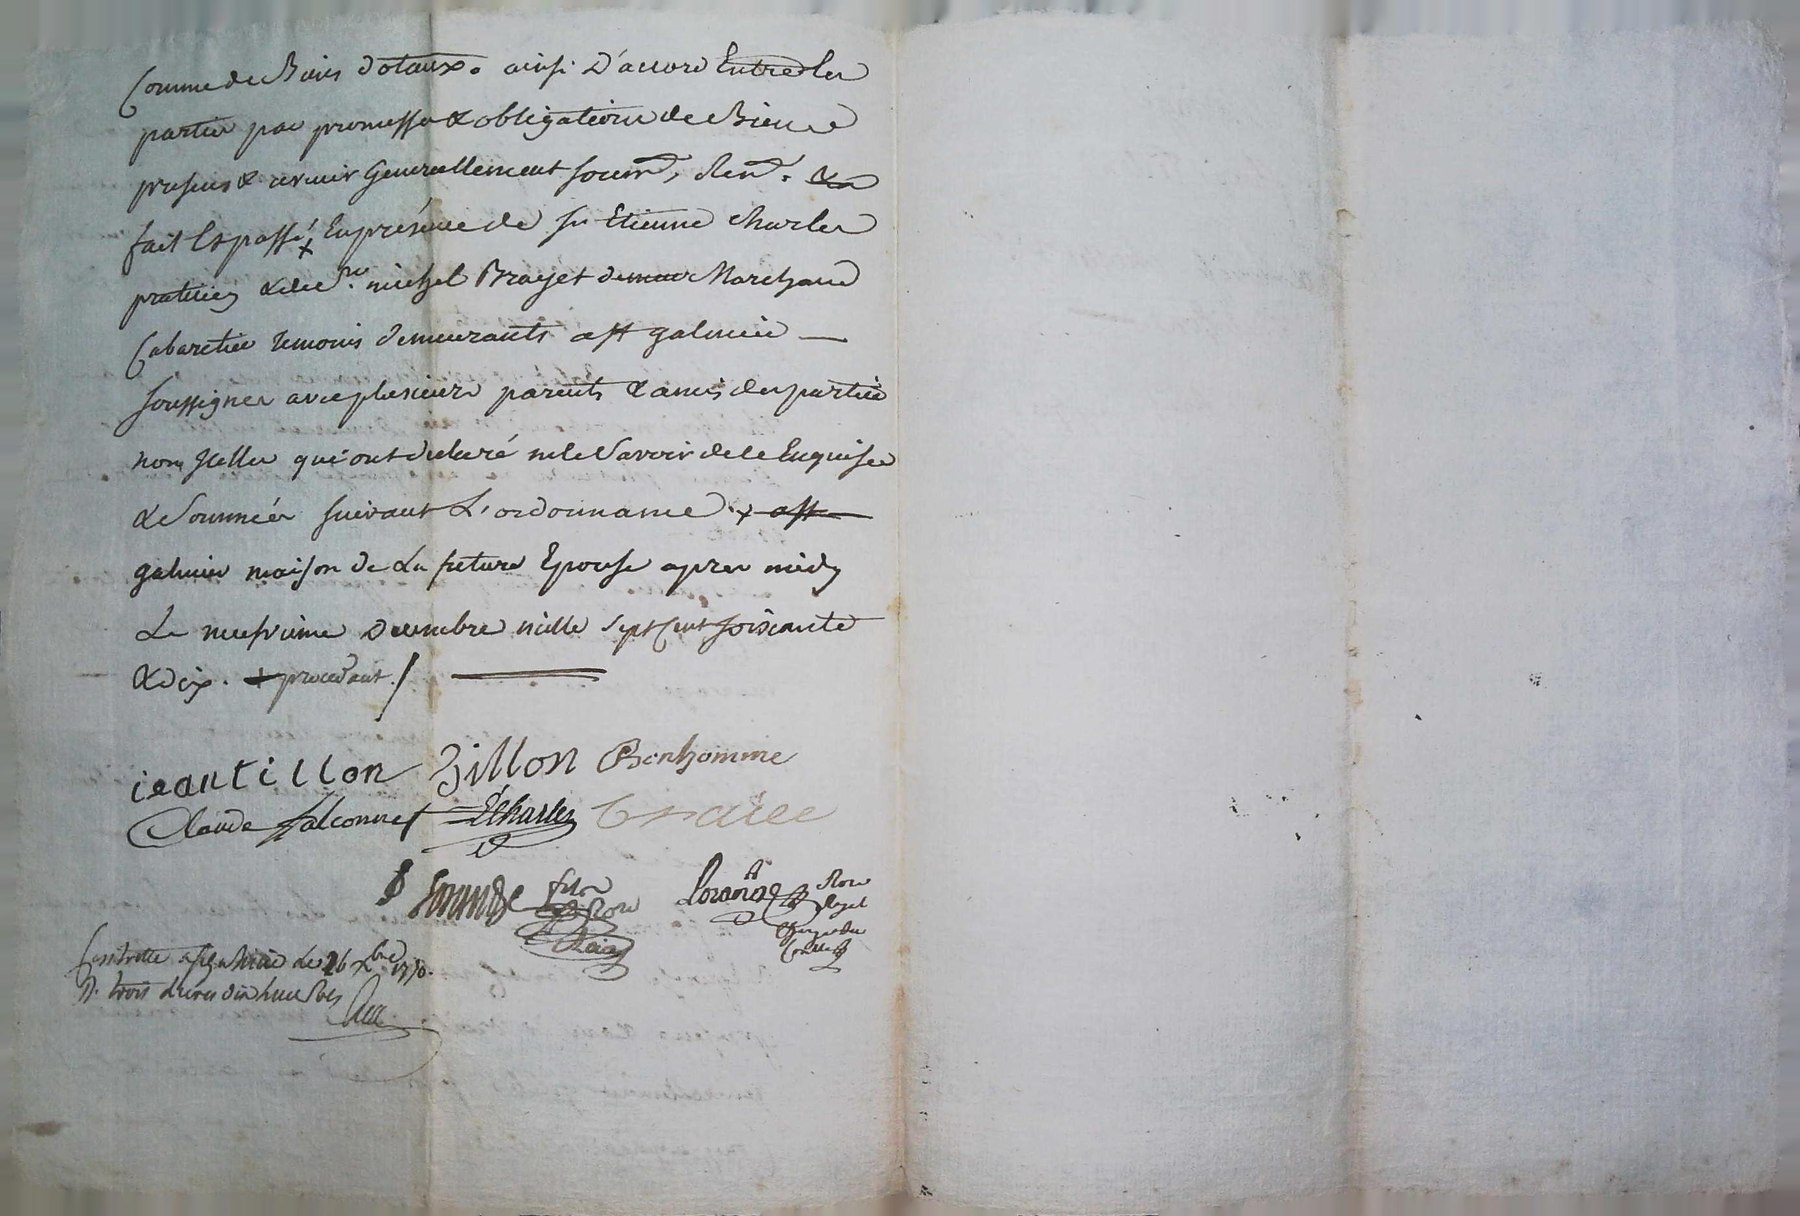 Comme de Biens dotaux. ainsi d'accord Entre les
parties par promesses & obligations de Biens
presens & avenir Generallement soum, Ren.
fait & passé + En présence de sr Etienne Charles
praticien & de sr. michel Brayet Marchand
Cabaretier temoins demeurants a st galmier —
soussignes avec plusieurs parents & amis des parties
non Jcelles qui ont declaré ne le Savoir de ce Enquises
& Sommées suivant L'ordonnance. + a st
galmier maison de La future Epouse apres midy
Le neufvieme decembre mille sept Cent soixante
& dix. + procedant ./
iean tillon Zillon Bonhomme
Claude falconnet ECharles
Controllé a st galmier le 26 xbre 1770.
R. trois livres dix huit sols